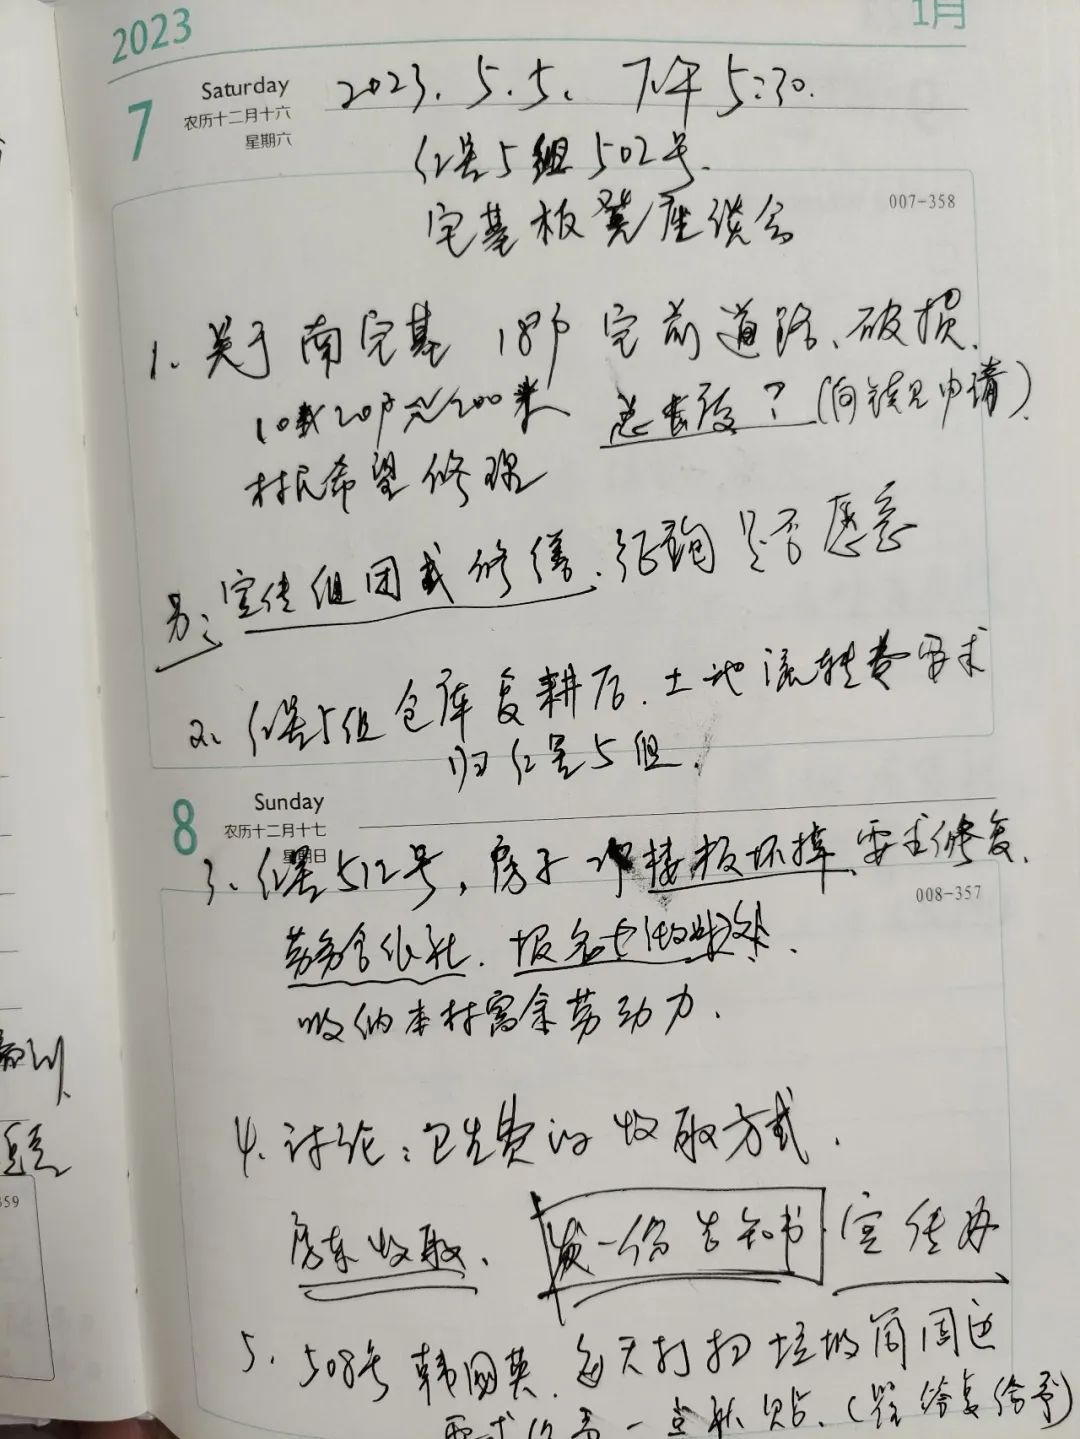 2023
1月
7
Saturday
农历十二月十六
星期六
2023.5.5. 下午5:30.
红星5组502号.
宅基板凳座谈会
007-358
1、关于南宅基 18户 宅前道路、破损.
村民希望修理
(向镇里申请)
另: 宣传组团式修缮、征询是否愿意
2、红星5组仓库复耕后、土地流转费要求
归红星5组.
8
Sunday
农历十二月十七
星期日
3、红星512号, 房子 接板坏掉、要求修复.
008-357
劳务合作社.
吸纳本村富余劳动力.
4、讨论: 卫生费的收取方式.
房东收取. 发一份告知书. 宣传好
5、508号韩国英、每天打扫垃圾筒周边
要求给予一点补贴.
359